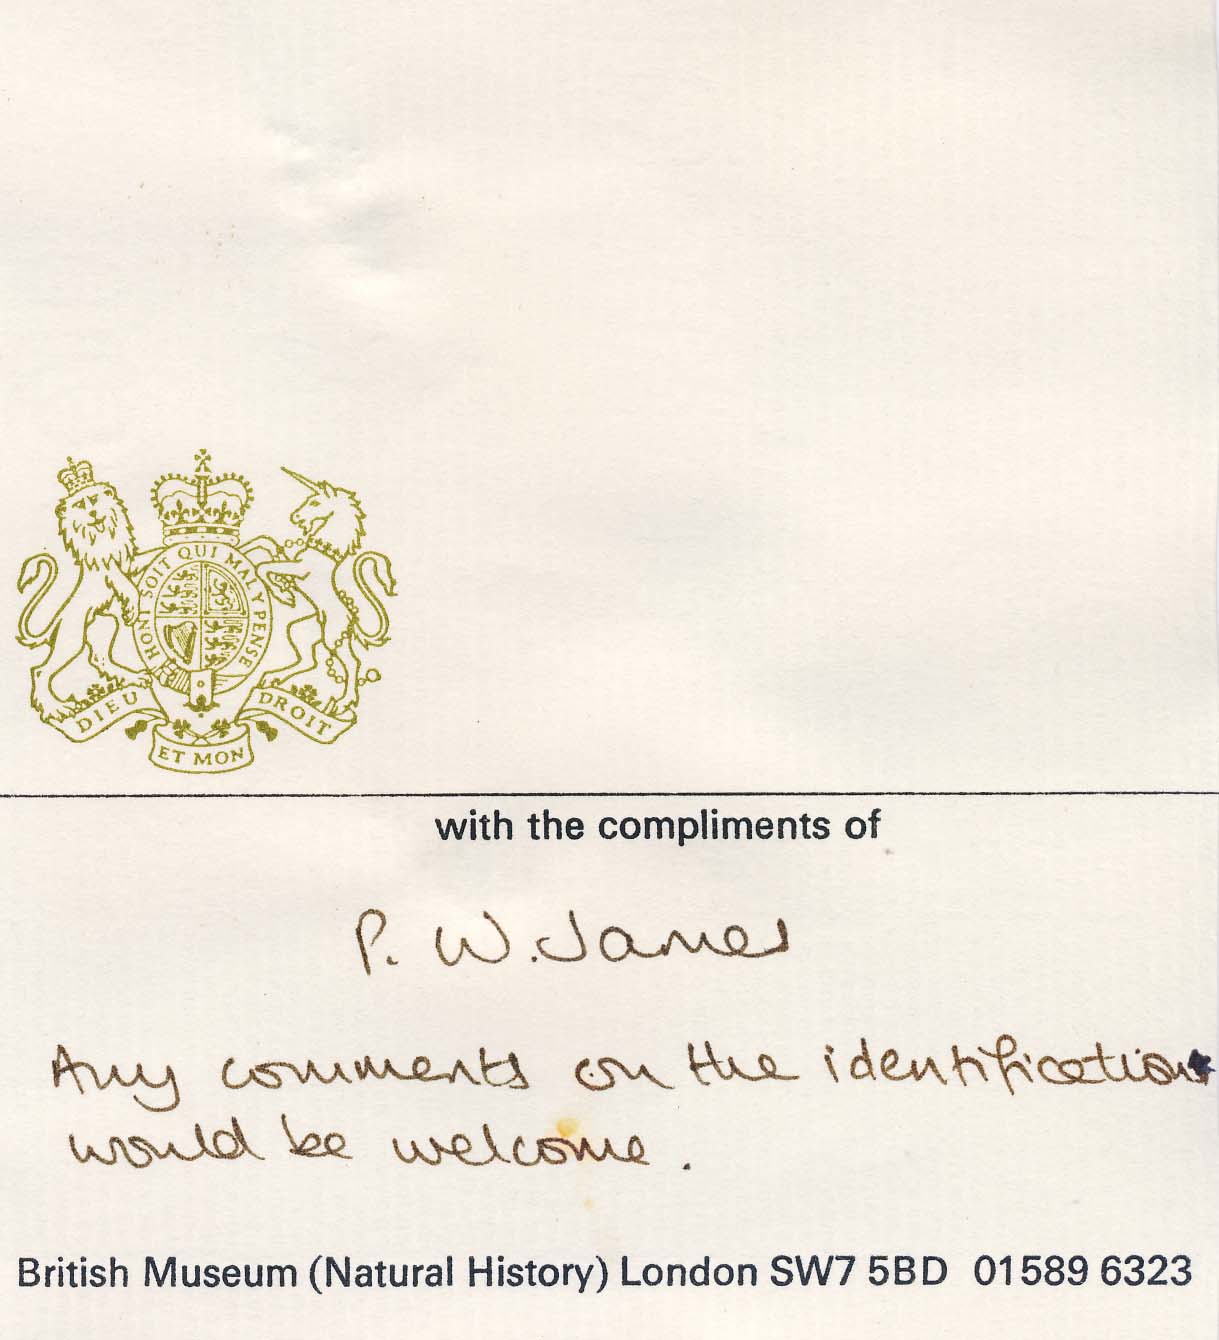 HONI SOIT QUI MAL Y PENSE
DIEU ET MON DROIT
with the compliments of
P. W. James
Any comments on the identification
would be welcome.
British Museum (Natural History) London SW7 5BD 01 589 6323